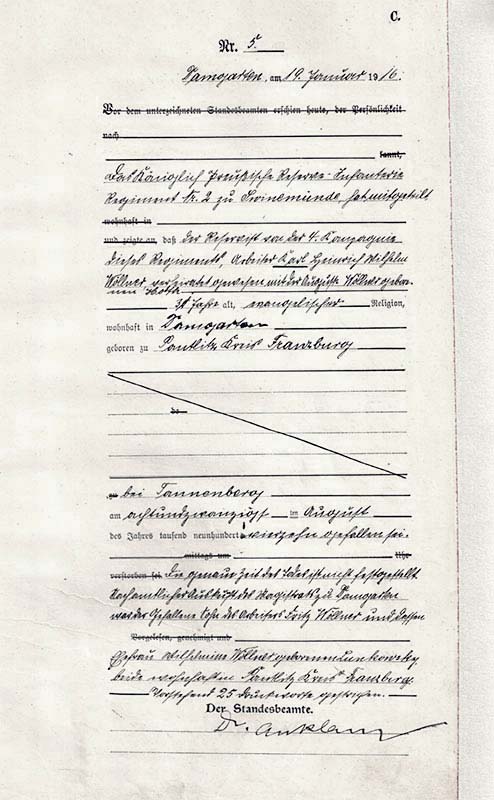 C.
Nr. 5.
Damgarten, am 19. Januar 1916.
Vor dem unterzeichneten Standesbeamten erschien heute, der Persönlichkeit
nach
kannt,
Das Königlich Preußische Reserve-Infanterie
Regiment Nr. 2 zu Swinemünde hat mitgeteilt
wohnhaft in
und zeigte an, daß der Reservist von der 4. Kompagnie
dieses Regiments, Arbeiter Karl Heinrich Wilhelm
Wöllner, verheiratet gewesen mit der Auguste Wöllner gebore-
nen
Jahre alt, evangelischer Religion,
wohnhaft in Damgarten
geboren zu Pantlitz Kreis Franzburg
de
zu bei Tannenberg
am achtundzwanzigst en August
des Jahres tausend neunhundert vierzehn gefallen sei.
mittags um Uhr
verstorben sei. Die genaue Zeit des Todes ist nicht festgestellt.
Nach amtlicher Auskunft des Magistrats zu Damgarten
war der Gefallene Sohn des Arbeiters Fritz Wöllner und dessen
Vorgelesen, genehmigt und
Ehefrau Wilhelmine Wöllner geborenen
beide wohnhaft Pantlitz Kreis Franzburg.
Vorstehend 25 Druckworte gestrichen.
Der Standesbeamte.
Dr. Anklam